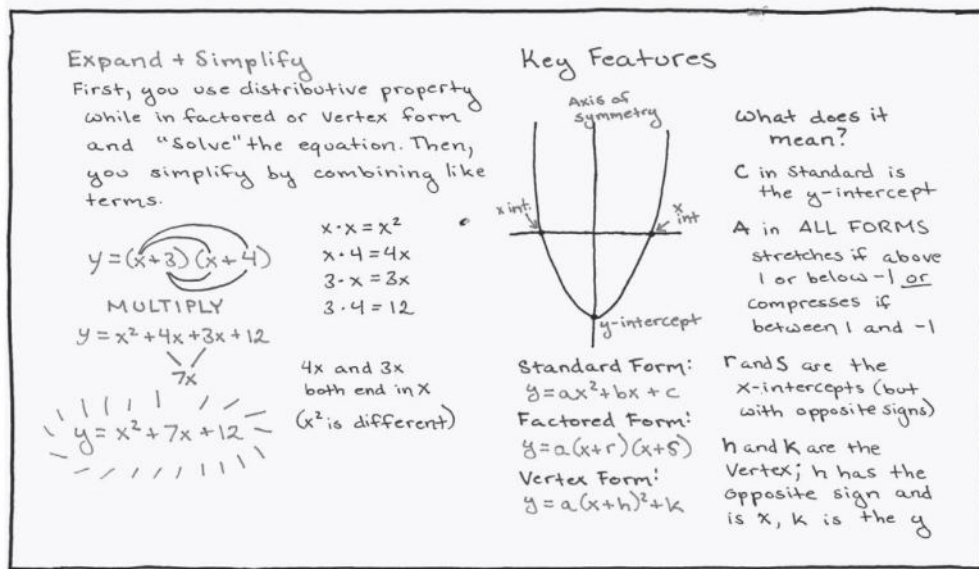 Expand + Simplify
First, you use distributive property
while in factored or vertex form
and "Solve" the equation. Then,
you simplify by combining like
terms.
y=(x+3)(x+4)
MULTIPLY
y=x²+4x+3x+12
7x
y=x²+7x+12
x·x=x²
x·4=4x
3·x=3x
3·4=12
4x and 3x
both end in x
(x² is different)
Key Features
Axis of
symmetry
x int.
x
int
y-intercept
Standard Form:
y=ax²+bx+c
Factored Form:
y=a(x+r)(x+s)
Vertex Form:
y=a(x+h)²+k
What does it
mean?
C in Standard is
the y-intercept
A in ALL FORMS
stretches if above
1 or below -1 or
compresses if
between 1 and -1
r and S are the
x-intercepts (but
with opposite signs)
h and k are the
vertex; h has the
opposite sign and
is x, k is the y